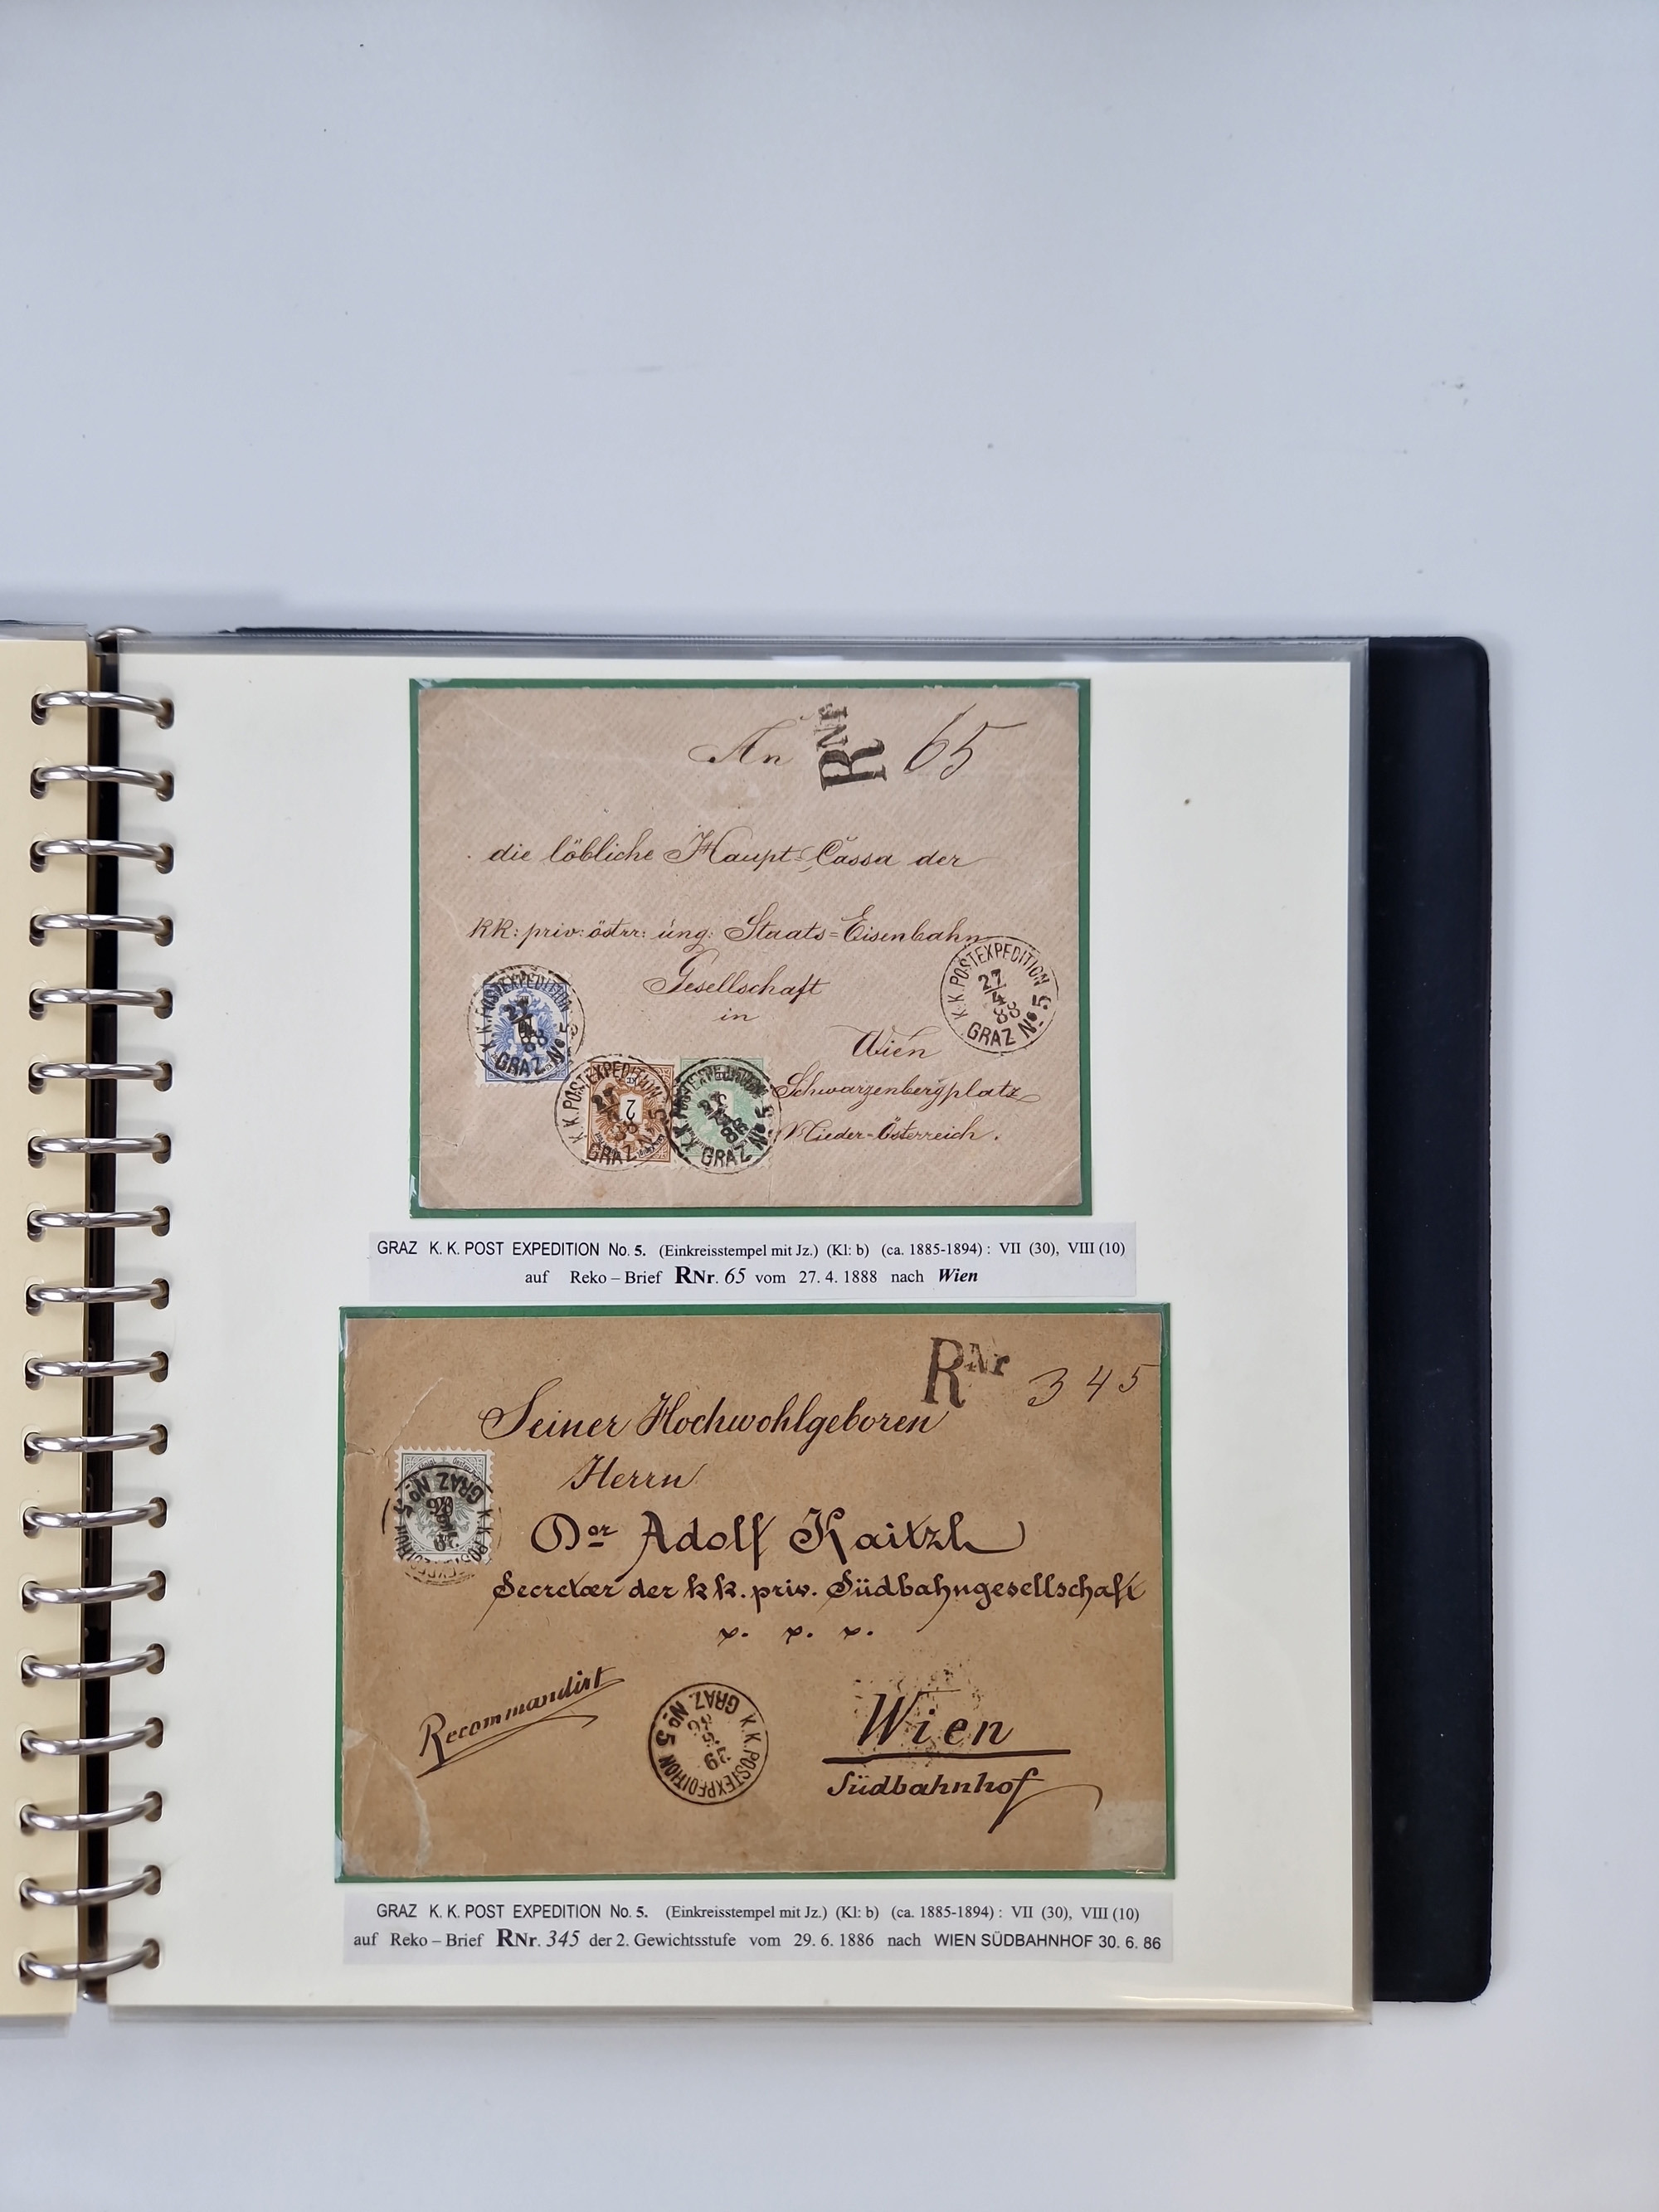 An RNr 65
die löbliche Haupt=Cassa der
KK: priv: österr: ung: Staats=Eisenbahn
Gesellschaft
in
Wien
Schwarzenbergplatz
Nieder=Österreich.
K.K. POSTEXPEDITION
27/4 88
GRAZ No 5
K.K. POSTEXPEDITION
27/4 88
GRAZ No 5
K.K. POSTEXPEDITION
2
GRAZ No 5
K.K. POSTEXPEDITION
GRAZ No 5
GRAZ K. K. POST EXPEDITION No. 5. (Einkreisstempel mit Jz.) (Kl: b) (ca. 1885-1894) : VII (30), VIII (10)
auf Reko – Brief RNr. 65 vom 27. 4. 1888 nach Wien
RNr 345
Seiner Hochwohlgeboren
Herrn
Dor Adolf Kaitzl
Secretær der kk. priv. Südbahngesellschaft
Recommandirt
Wien
Südbahnhof
K.K. POSTEXPEDITION
GRAZ No 5
K.K. POSTEXPEDITION
GRAZ No 5
GRAZ K. K. POST EXPEDITION No. 5. (Einkreisstempel mit Jz.) (Kl: b) (ca. 1885-1894) : VII (30), VIII (10)
auf Reko – Brief RNr. 345 der 2. Gewichtsstufe vom 29. 6. 1886 nach WIEN SÜDBAHNHOF 30. 6. 86